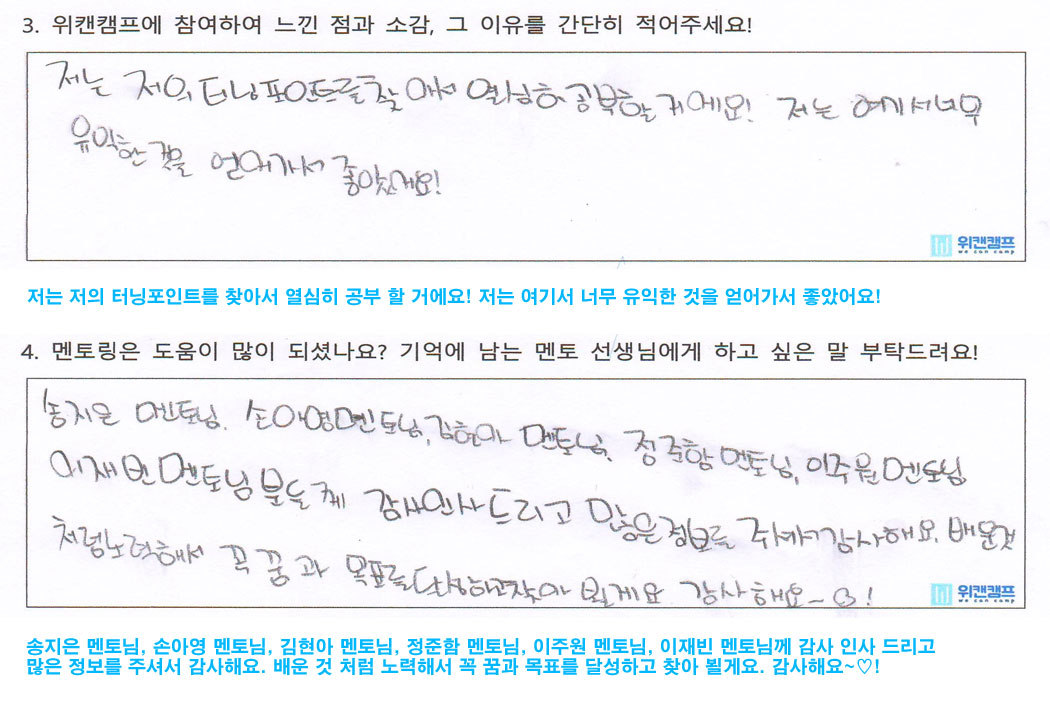 3. 위캔캠프에 참여하여 느낀 점과 소감, 그 이유를 간단히 적어주세요!
저는 저의 터닝포인트를 찾아서 열심히 공부할 거에요! 저는 여기서 너무
유익한 것을 얻어가서 좋았어요!
위캔캠프
we can camp
저는 저의 터닝포인트를 찾아서 열심히 공부 할 거에요! 저는 여기서 너무 유익한 것을 얻어가서 좋았어요!
4. 멘토링은 도움이 많이 되셨나요? 기억에 남는 멘토 선생님에게 하고 싶은 말 부탁드려요!
송지은 멘토님, 손아영 멘토님, 김현아 멘토님, 정준함 멘토님, 이주원 멘토님
이재빈 멘토님 분들께 감사인사 드리고 많은 정보를 주셔서 감사해요. 배운것
처럼 노력해서 꼭 꿈과 목표를 달성하고 찾아 뵐게요 감사해요~♡!
위캔캠프
we can camp
송지은 멘토님, 손아영 멘토님, 김현아 멘토님, 정준함 멘토님, 이주원 멘토님, 이재빈 멘토님께 감사 인사 드리고
많은 정보를 주셔서 감사해요. 배운 것 처럼 노력해서 꼭 꿈과 목표를 달성하고 찾아 뵐게요. 감사해요~♡!